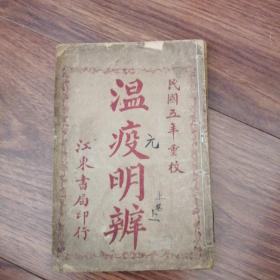 民國五年重校
溫疫明辨
元
上卷上
江東書局印行